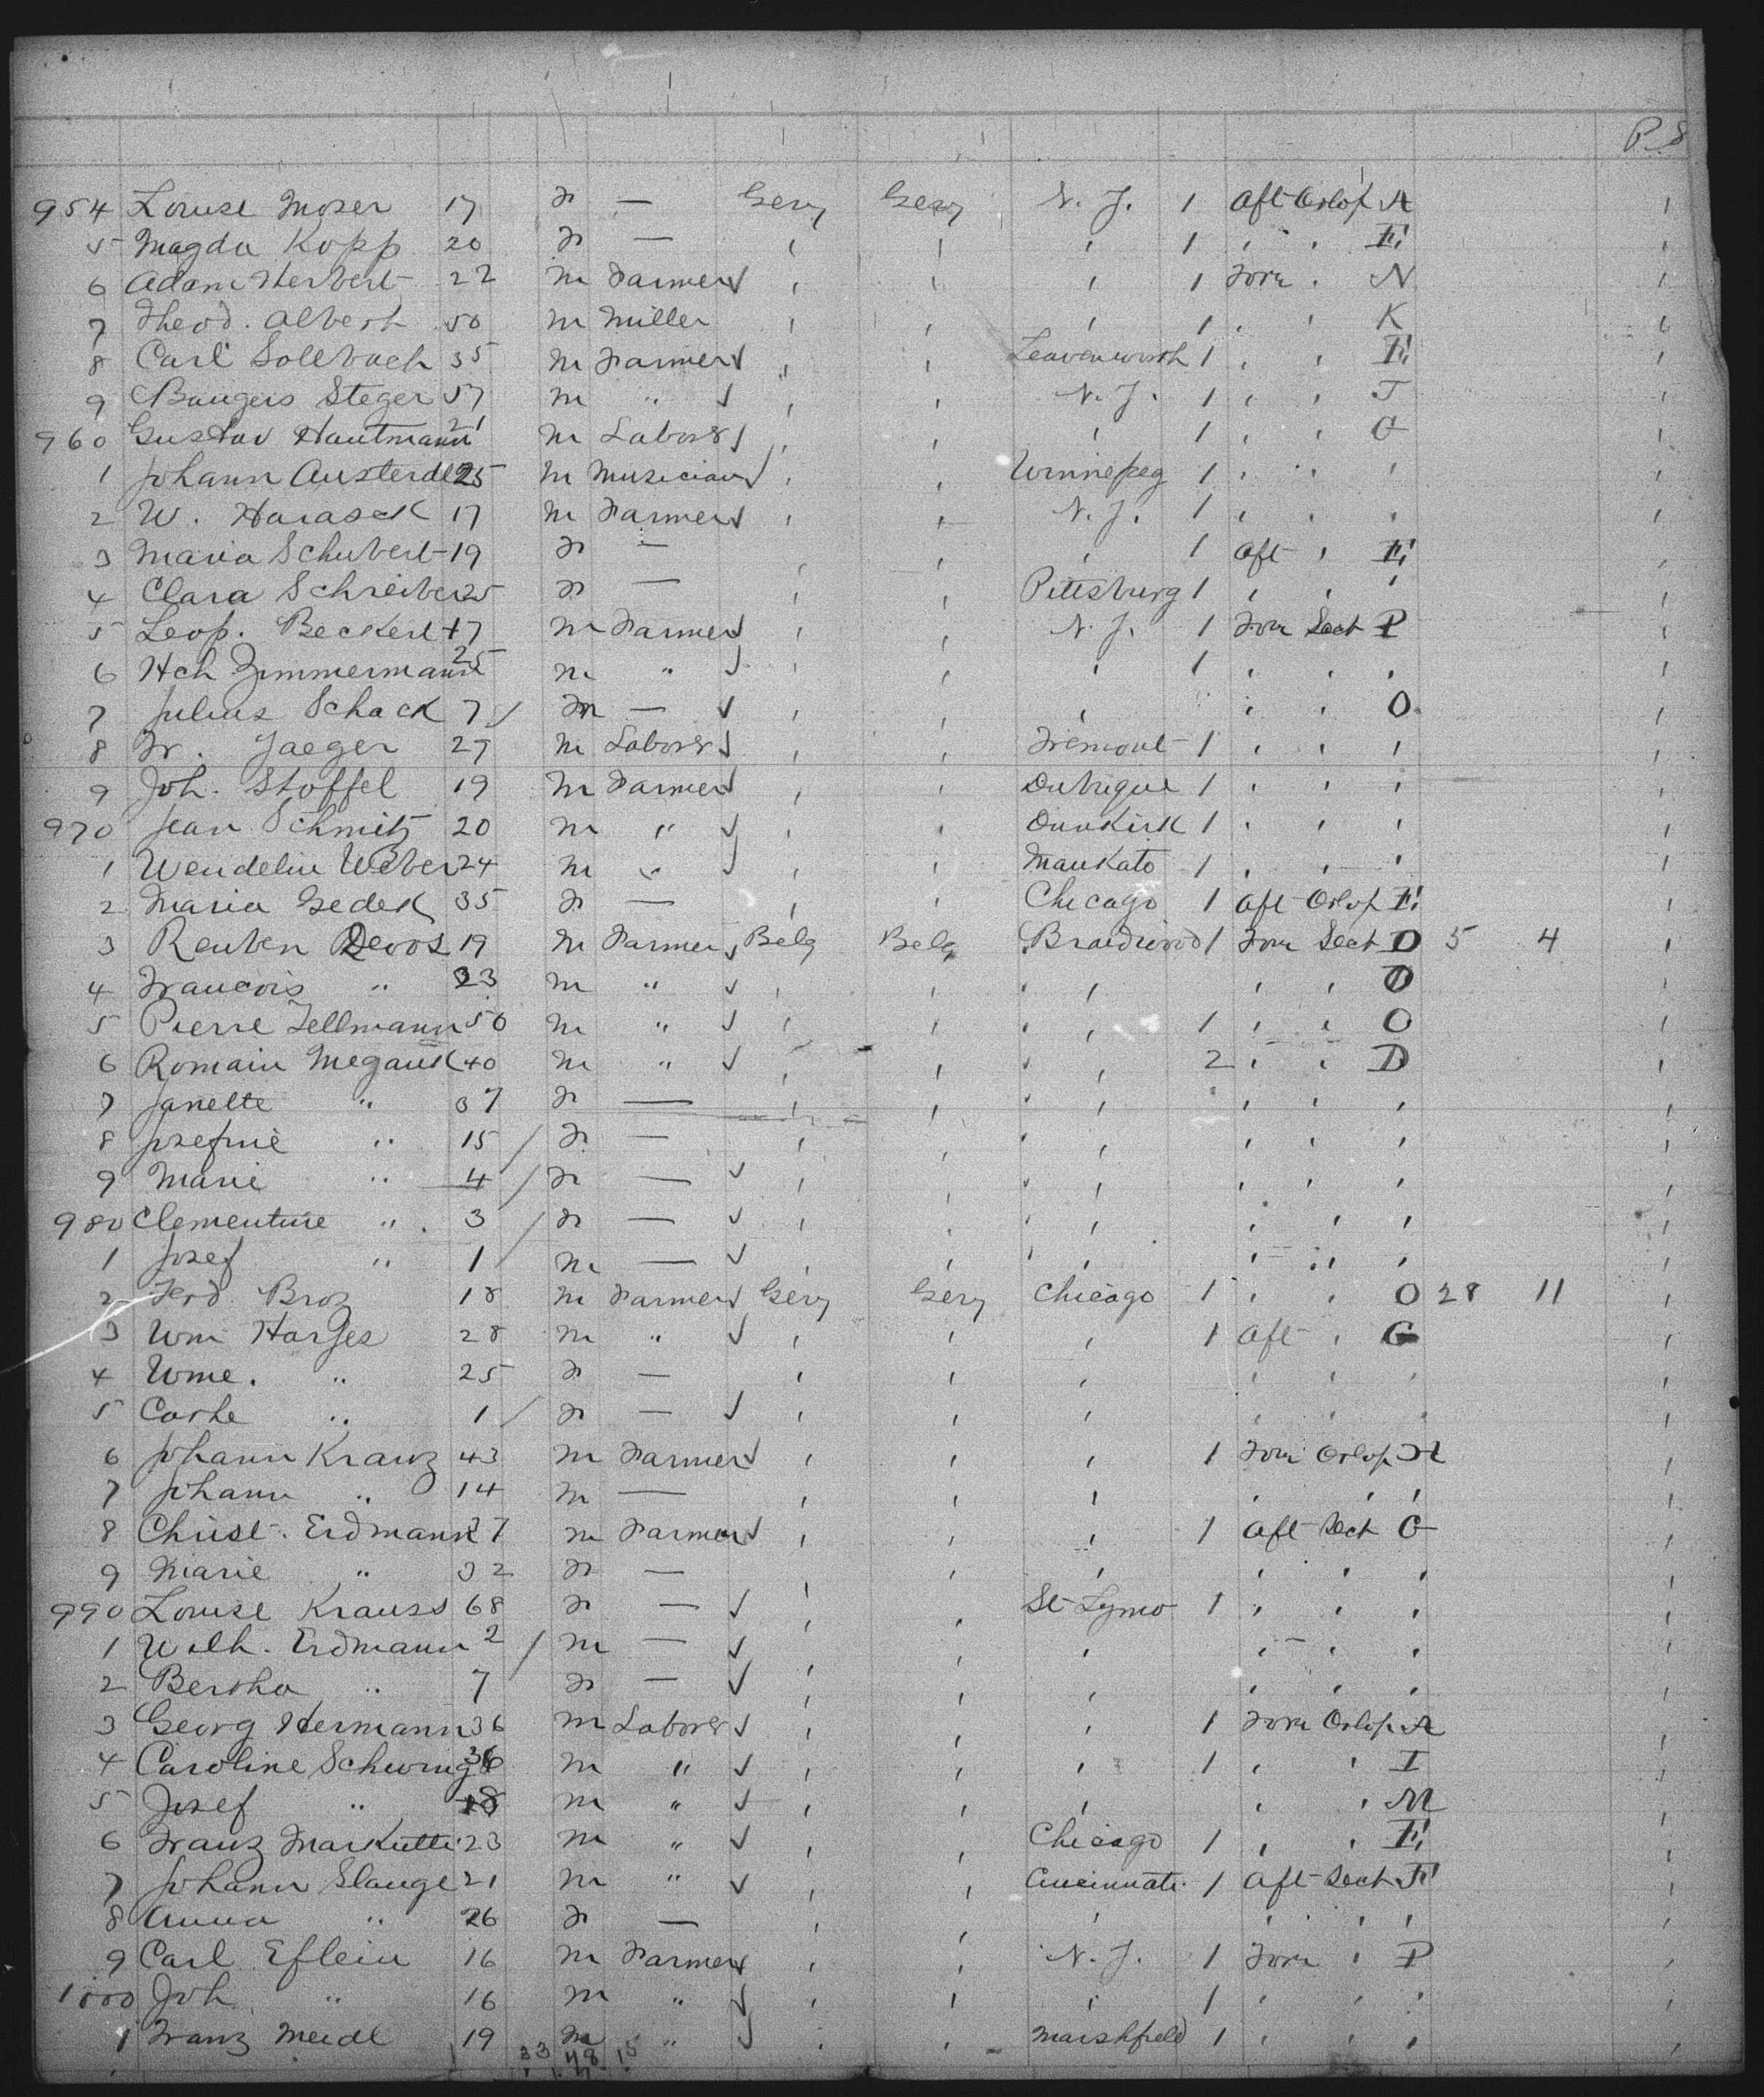 P. 8
954 Louise Moser 17 F — Gery Gery N. Y. 1 Aft Orlop A
5 Magda Kopp 20 F — 1 E
6 Adam Herbert 22 M Farmer 1 Forw N
7 Theod. Albert 50 M Miller 1 K
8 Carl Sollbach 35 M Farmer Leavenworth 1 E
9 Steger 57 M " N. Y. 1 J
960 Gustav Hautmann 21 M Labors 1 G
1 Johann 25 M Musician Winnepeg 1
2 W. Harasek 17 M Farmer N. Y. 1
3 Maria Schubert 19 F — 1 Aft E
4 Clara Schreiber 25 F — Pittsburg 1
5 Leop. Beckert 17 M Farmer N. Y. 1 Forw Deck P
6 Hch Zimmermann 25 M " 1
7 Julius Schack 7 M — O
8 Fr. Jaeger 27 M Labors Fremont 1
9 Joh. Stoffel 19 M Farmer Dubuque 1
970 Jean Schmitz 20 M " Dunkirk 1
1 Wendelin Weber 24 M " Mankato 1
2 Maria Gedek 35 F — Chicago 1 Aft Orlop E
3 Reuben Devos 19 M Farmer Belg Belg Braidwood 1 Forw Deck D 5 4
4 Francois " 23 M " O
5 Pierre Tellmann 50 M " 1 O
6 Romain Megank 40 M " 2 D
7 Janette " 37 F —
8 Josefine " 15 F —
9 Marie " 4 F —
980 Clementine " 3 F —
1 Josef " 1 M —
2 Ferd Broz 18 M Farmer Gery Gery Chicago 1 O 28 11
3 Wm Harjes 28 M " 1 Aft G
4 Wme. " 25 F —
5 " 1 F —
6 Johann Kranz 43 M Farmer 1 Forw Orlop H
7 Johann " 14 M —
8 Christ. Erdmann 37 M Farmer 1 Aft Deck G
9 Marie " 32 F —
990 Louise Krauss 68 F — 1
1 Wilh. Erdmann 2 M —
2 Bertha " 7 F —
3 Georg Hermann 36 M Labors 1 Forw Orlop A
4 Caroline 36 M " 1 I
5 Josef " 18 M " M
6 Franz 23 M " Chicago 1 E
7 Johann Slange 21 M " Cincinnati 1 Aft Deck F
8 Anna " 26 F —
9 Carl Eflein 16 M Farmer N. Y. 1 Forw P
1000 Joh " 16 M " 1
1 Franz Meidl 19 M " Marshfield 1
33 48 15